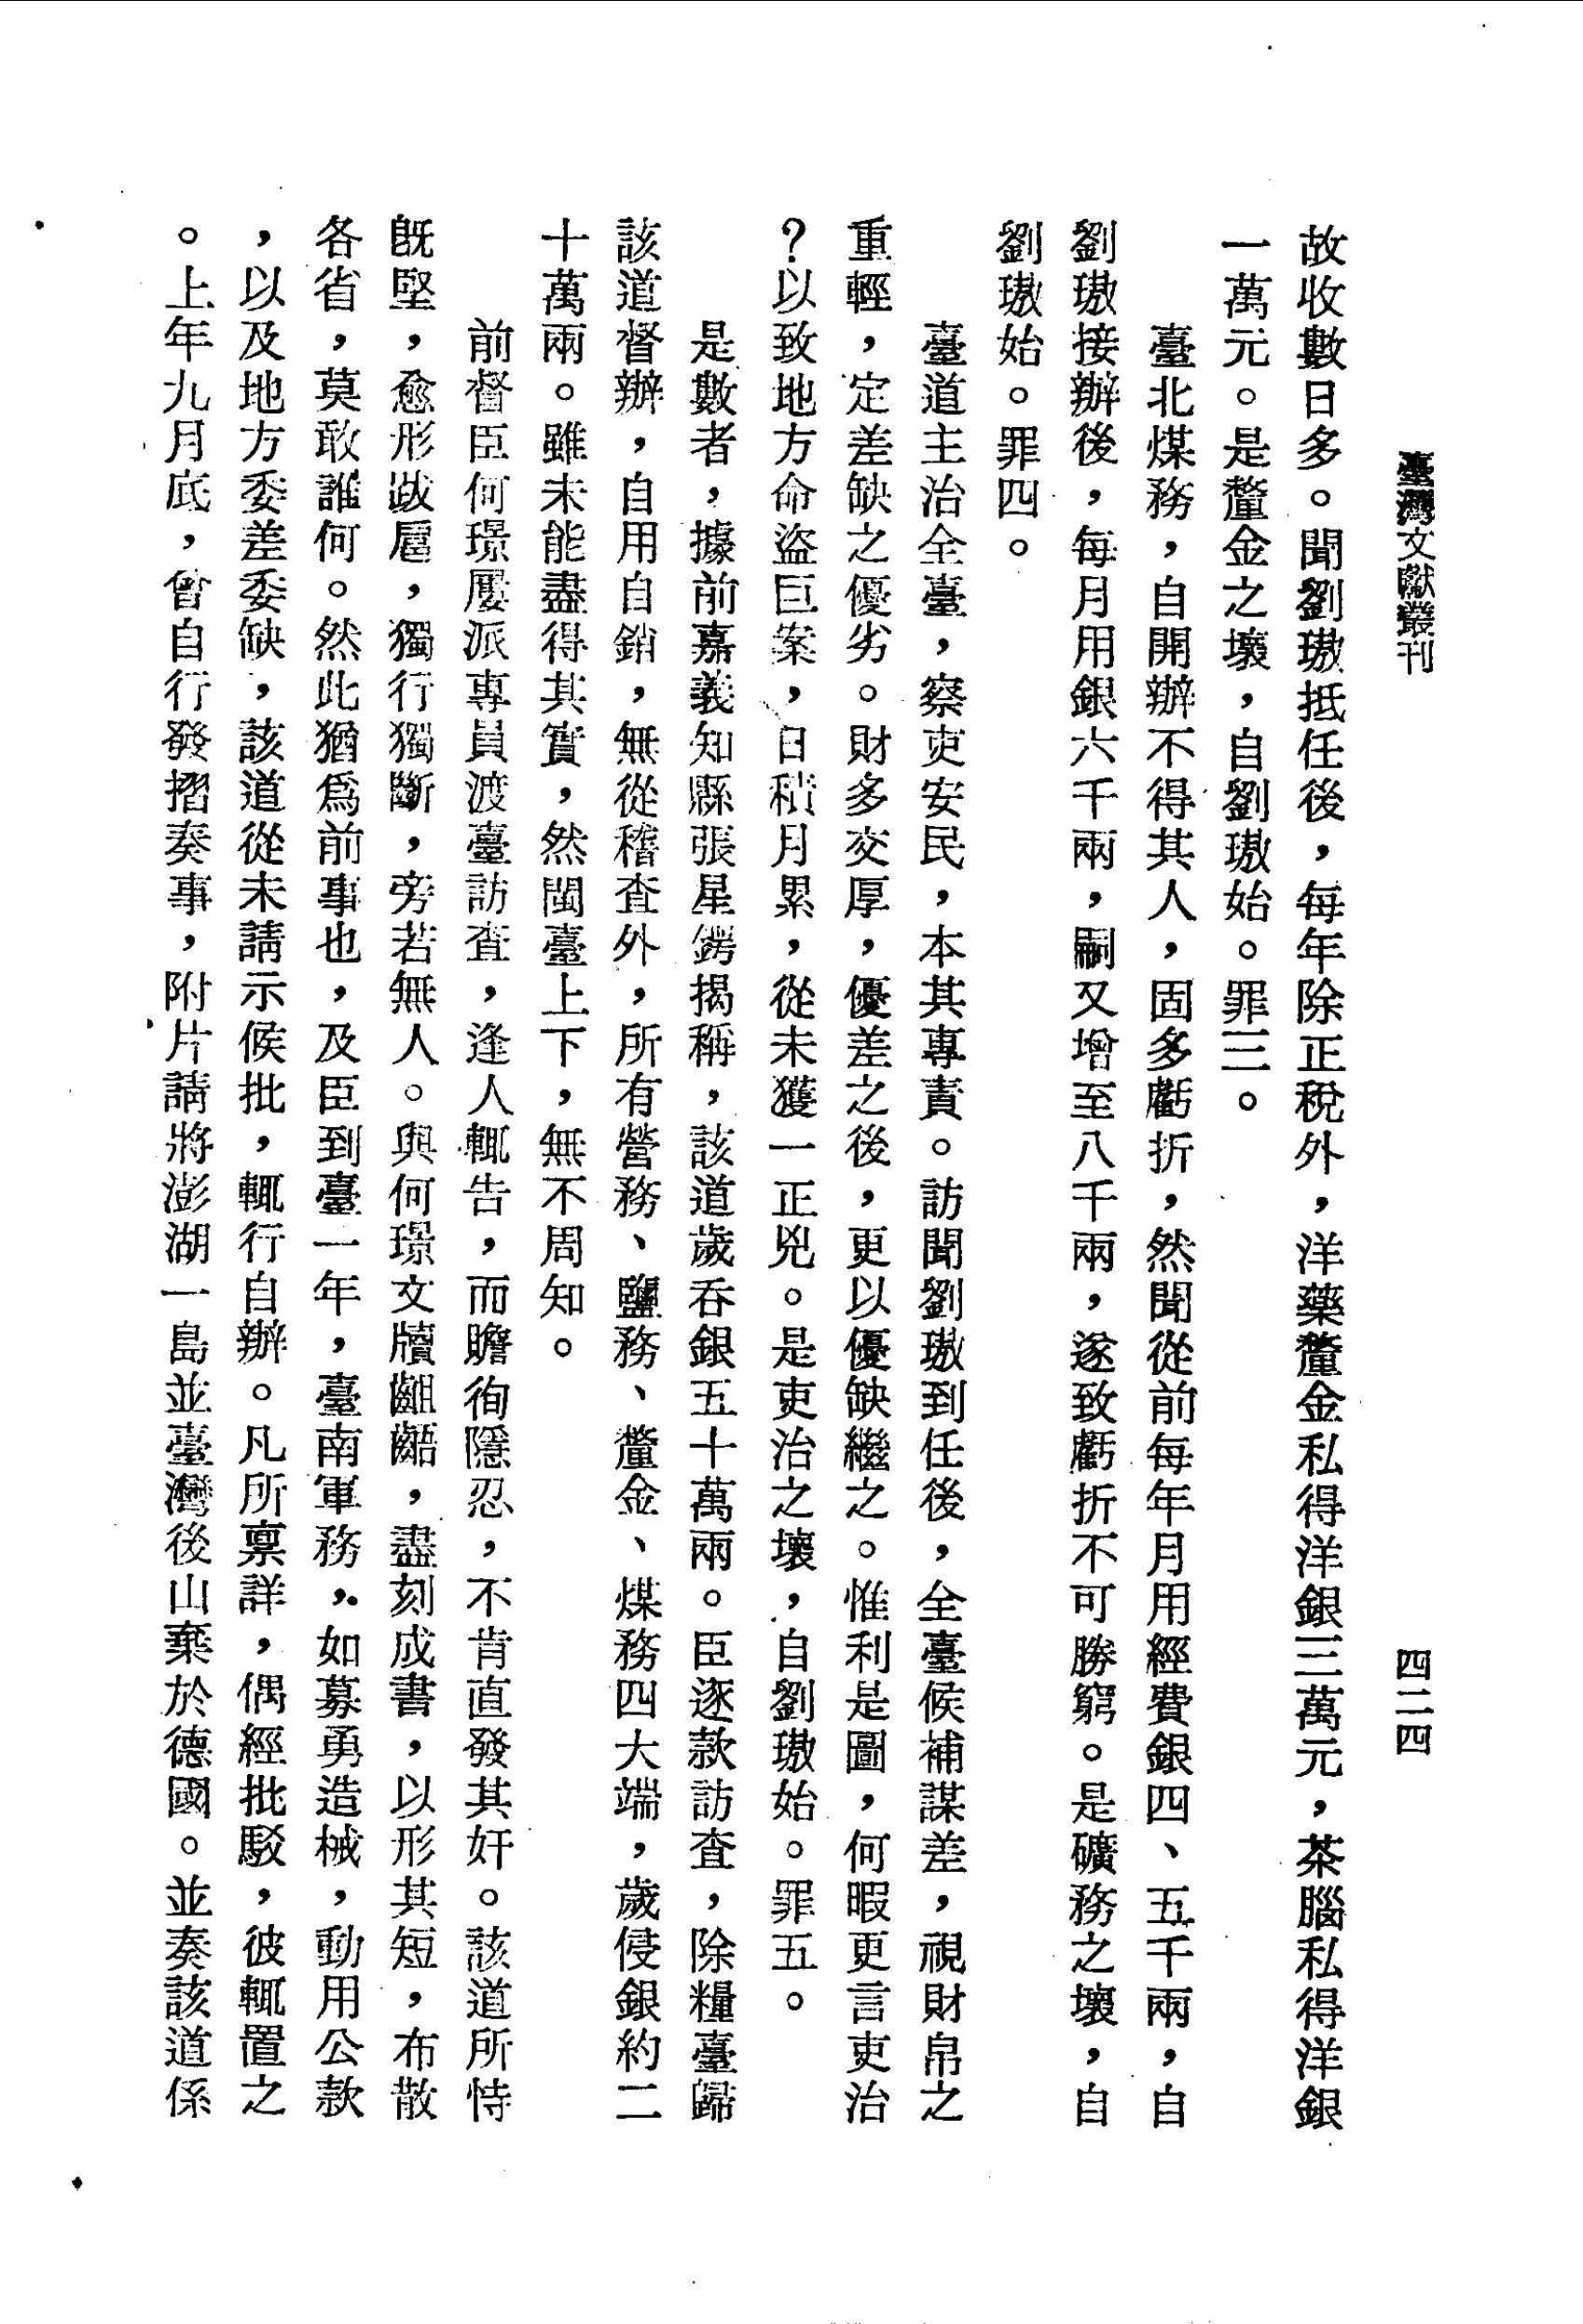 臺灣文獻叢刊
四二四
故收數日多。聞劉璈抵任後，每年除正稅外，洋藥釐金私得洋銀三萬元，茶腦私得洋銀
一萬元。是釐金之壞，自劉璈始。罪三。
臺北煤務，自開辦不得其人，固多虧折，然聞從前每年月用經費銀四、五千兩，自
劉璈接辦後，每月用銀六千兩，嗣又增至八千兩，遂致虧折不可勝窮。是礦務之壞，自
劉璈始。罪四。
臺道主治全臺，察吏安民，本其專責。訪聞劉璈到任後，全臺候補謀差，視財帛之
重輕，定差缺之優劣。財多交厚，優差之後，更以優缺繼之。惟利是圖，何暇更言吏治
？以致地方命盜巨案，日積月累，從未獲一正兇。是吏治之壞，自劉璈始。罪五。
是數者，據前嘉義知縣張星鍔揭稱，該道歲吞銀五十萬兩。臣逐款訪查，除糧臺歸
該道督辦，自用自銷，無從稽查外，所有營務、鹽務、釐金、煤務四大端，歲侵銀約二
十萬兩。雖未能盡得其實，然閩臺上下，無不周知。
前督臣何璟屢派專員渡臺訪查，逢人輒告，而瞻徇隱忍，不肯直發其奸。該道所恃
旣堅，愈形跋扈，獨行獨斷，旁若無人。與何璟文牘齟齬，盡刻成書，以形其短，布散
各省，莫敢誰何。然此猶爲前事也，及臣到臺一年，臺南軍務，如募勇造械，動用公款
，以及地方委差委缺，該道從未請示候批，輒行自辦。凡所稟詳，偶經批駁，彼輒置之
。上年九月底，曾自行發摺奏事，附片請將澎湖一島並臺灣後山棄於德國。並奏該道係